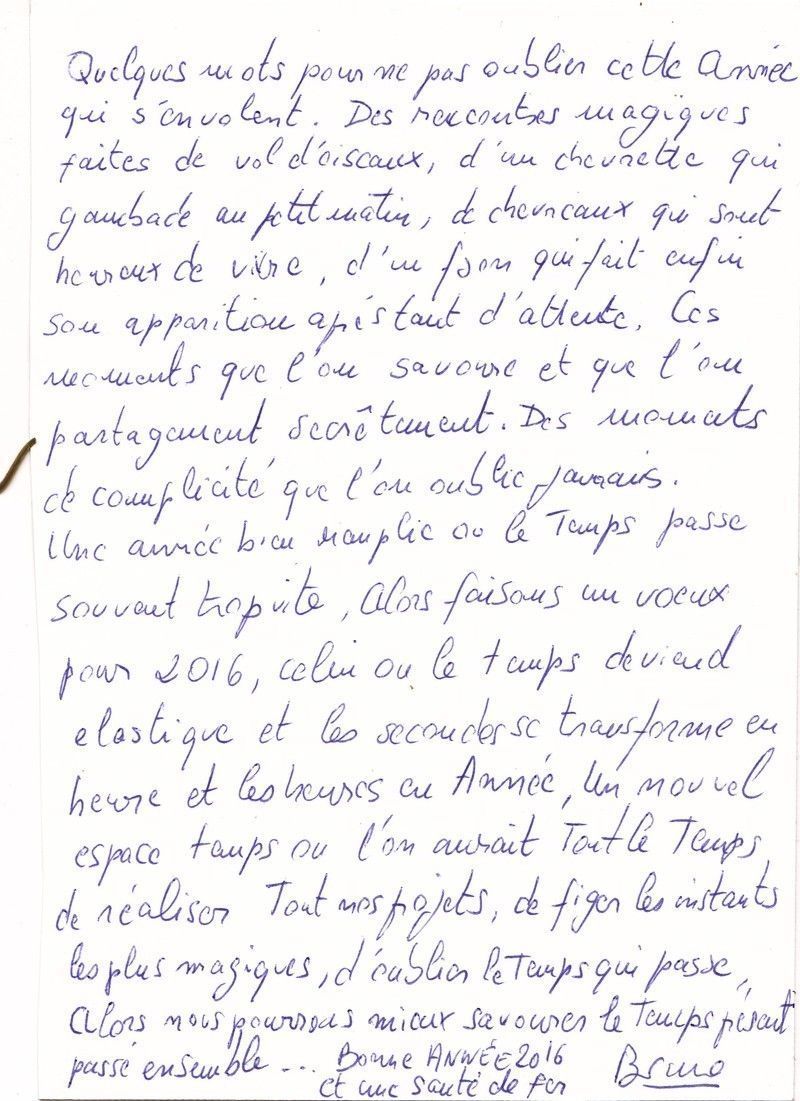 Quelques mots pour ne pas oublier cette Année
qui s'envolent. Des rencontres magiques
faites de vol d'oiseaux, d'un chevrette qui
gambade au petit matin, de chevreaux qui sont
heureux de vivre, d'un faon qui fait enfin
son apparition aprés tant d'attente. Ces
moments que l'on savoure et que l'on
partagent secrêtement. Des moments
de complicité que l'on oublie jamais.
Une année bien remplie ou le Temps passe
souvent trop vite, Alors faisons un voeux
pour 2016, celui ou le temps deviend
elastique et les secondes se transforme en
heure et les heures en Année, Un nouvel
espace temps ou l'on aurait Tout le Temps
de réaliser Tout nos projets, de figer les instants
les plus magiques, d'oublier le Temps qui passe,
Alors nous pourrons mieux savourer le Temps présent
passé ensemble ... Bonne ANNÉE 2016
et une santé de fer Bruno